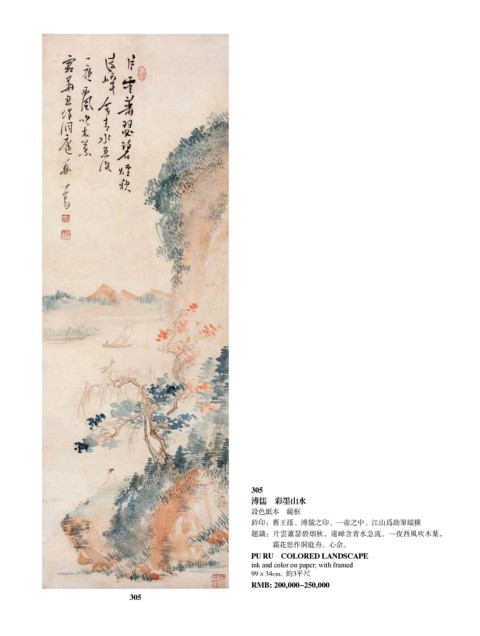 片雲蕭瑟碧煙秋
遠嶂含青水急流
一夜西風吹木葉
霜華思作洞庭舟
心畬
305
溥儒 彩墨山水
設色紙本 鏡框
鈐印:舊王孫、溥儒之印、一壺之中、江山爲助筆縱橫
題識:片雲蕭瑟碧烟秋,遠嶂含青水急流。一夜西風吹木葉,
霜花思作洞庭舟。心畬。
PU RU COLORED LANDSCAPE
ink and color on paper; with framed
99×34cm. 約3平尺
RMB: 200,000~250,000
305